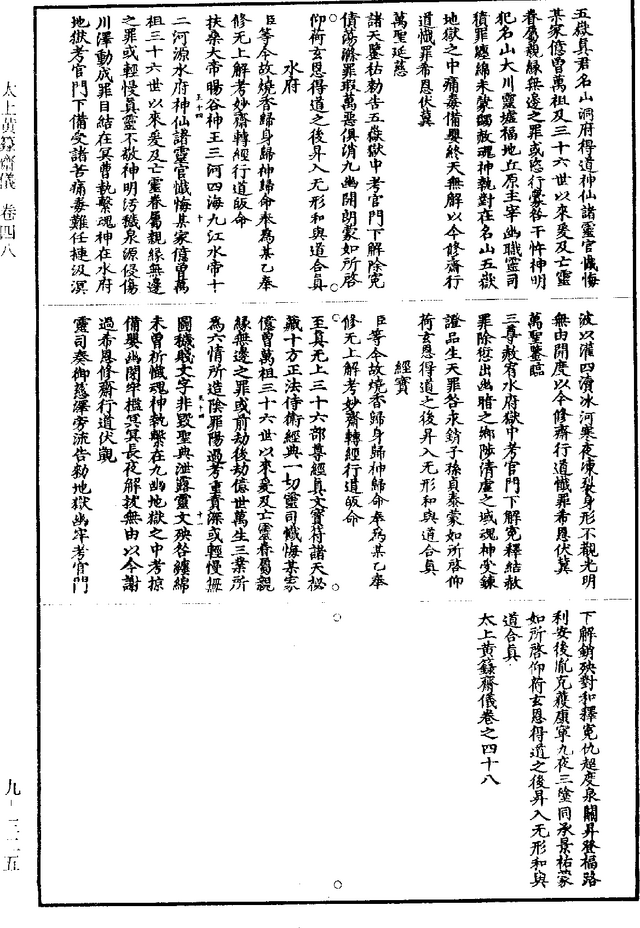 五嶽真君名山洞府得道神仙諸靈官懺悔
某家億曾萬祖及三十六世以來爰及亡靈
眷屬親緣無邊之罪或恣行蒙咎干忤神明
犯名山大川靈墟福地丘原主宰幽職靈司
積罪纏綿未蒙蠲赦魂神執對在名山五嶽
地獄之中痛毒備嬰終天無解以今修齋行
道懺罪希恩伏冀
萬聖延慈
諸天鑒祐勑告五嶽獄中考官門下解除冤
債蕩滌罪瑕萬惡俱消九幽開朗蒙如所啓
仰荷玄恩得道之後昇入无形和與道合真
水府
臣等今故燒香歸身歸神歸命奉為某乙奉
修无上解考妙齋轉經行道皈命
扶桑大帝暘谷神王三河四海九江水帝十
二河源水府神仙諸靈官懺悔某家億曾萬
祖三十六世以來爰及亡靈眷屬親緣無邊
之罪或輕慢真靈不敬神明汚穢泉源侵傷
川澤動成罪目結在冥曹執繫魂神在水府
地獄考官門下備受諸苦痛毒難任捷汲溟
波以灌四瀆氷河寒夜凍裂身形不覩光明
無由開度以今修齋行道懺罪希恩伏冀
萬聖鑒臨
三尊赦宥水府獄中考官門下解冤釋結赦
罪除愆出幽暗之鄉陟清虛之域魂神受鍊
證品生天罪咎永銷子孫貞泰蒙如所啓仰
荷玄恩得道之後昇入无形和與道合真
經寶
臣等今故燒香歸身歸神歸命奉為某乙奉
修无上解考妙齋轉經行道皈命
至真无上三十六部尊經真文寶符諸天秘
藏十方正法侍衛經典一切靈司懺悔某家
億曾萬祖三十六世以來爰及亡靈眷屬親
緣無邊之罪或前劫後劫億世萬生三業所
為六情所造陰罪陽過考重責深或輕慢無
圖穢賤文字非毀聖典泄露靈文殃咎纏綿
未曾祈懺魂神執繫在九幽地獄之中考掠
備嬰幽閉牢檻冥冥長夜解拔無由以今謝
過希恩修齋行道伏覬
靈司奏御慈澤旁流告勑地獄幽牢考官門
下解銷殃對和釋冤仇超度泉關昇登福路
利安後胤克獲康寧九夜三塗同承景祐蒙
如所啓仰荷玄恩得道之後昇入无形和與
道合真
太上黄籙齋儀卷之四十八
太上黄籙齋儀 卷四八
九-三二五